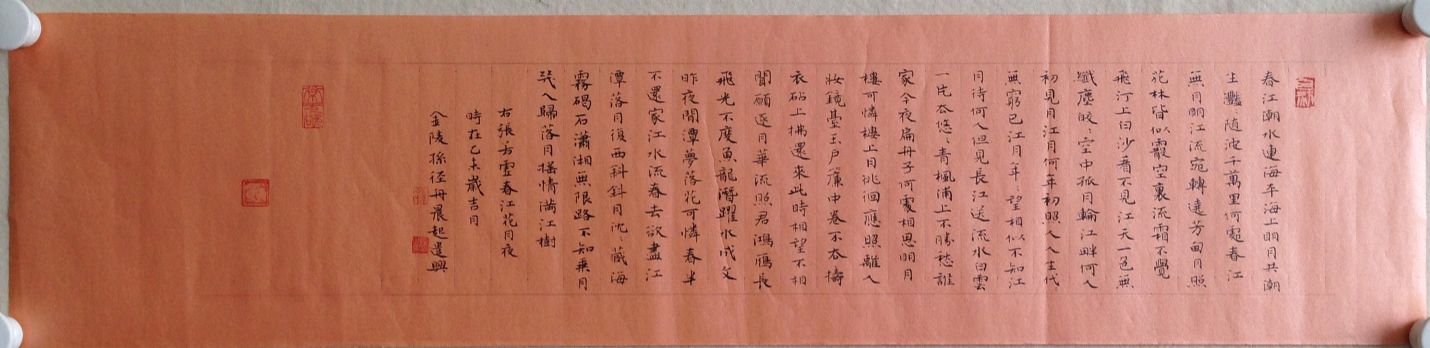 春江潮水連海平海上明月共潮
生灩隨波千萬里何處春江
無月明江流宛轉遶芳甸月照
花林皆似霰空裏流霜不覺
飛汀上白沙看不見江天一色無
纖塵皎〻空中孤月輪江畔何人
初見月江月何年初照人人生代
無窮已江月年〻望相似不知江
月待何人但見長江送流水白雲
一片去悠〻青楓浦上不勝愁誰
家今夜扁舟子何處相思明月
樓可憐樓上月徘徊應照離人
妝鏡臺玉戶簾中卷不去擣
衣砧上拂還來此時相望不相
聞願逐月華流照君鴻雁長
飛光不度魚龍潛躍水成文
昨夜閒潭夢落花可憐春半
不還家江水流春去欲盡江
潭落月復西斜斜月沈〻藏海
霧碣石瀟湘無限路不知乘月
幾人歸落月搖情滿江樹
右張若虛春江花月夜
時在乙未歲吉月
金陵孫徑舟晨起遣興